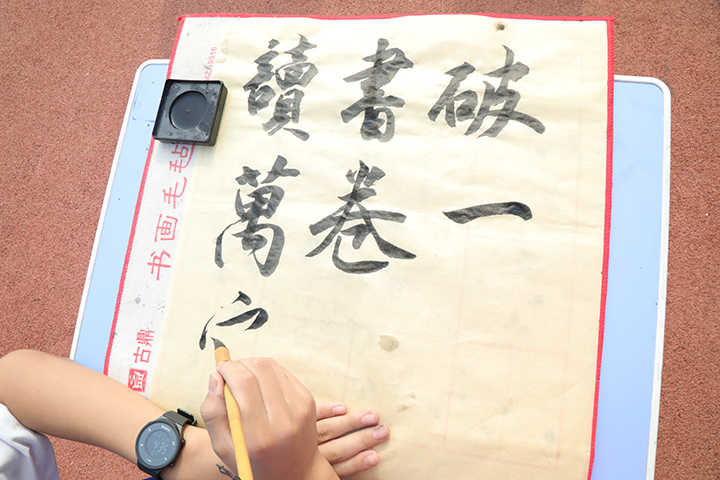 讀書破
萬卷一
书画毛毡
古鼎